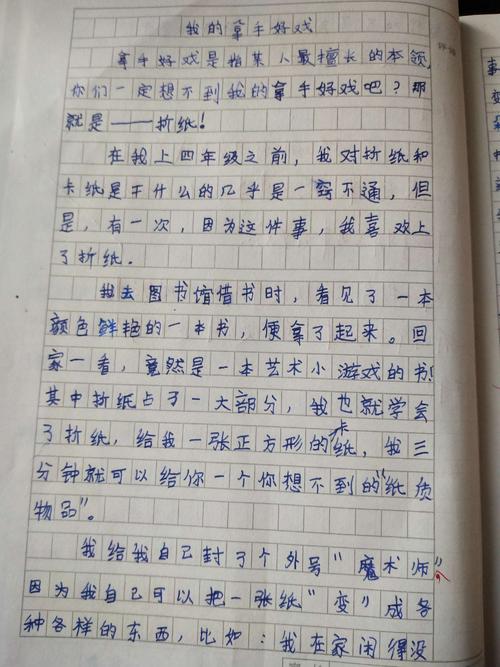 我的拿手好戏
拿手好戏是指某人最擅长的本领,
你们一定想不到我的拿手好戏吧?那
就是——折纸!
在我上四年级之前,我对折纸和
卡纸是干什么的几乎是一窍不通,但
是,有一次,因为这件事,我喜欢上
了折纸.
我去图书馆借书时,看见了一本
颜色鲜艳的一本书,便拿了起来。回
家一看,竟然是一本艺术小游戏的书!
其中折纸占了一大部分,我也就学会
了折纸,给我一张正方形的卡纸,我三
分钟就可以给你一个你想不到的“纸质
物品”。
我给我自己封了个外号“魔术师”,
因为我自己可以把一张纸“变”成各
种各样的东西,比如:我在家闲得没